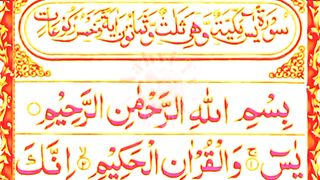 سُوْرَةُ يٰسٓ مَكِّيَّةٌ وَّهِيَ ثَلٰثٌ وَّثَمَانُوْنَ اٰيَةً وَّخَمْسُ رُكُوْعَاتٍ
بِسْمِ اللّٰهِ الرَّحْمٰنِ الرَّحِيْمِ
يٰسٓ ۝١ وَالْقُرْاٰنِ الْحَكِيْمِ ۝٢ اِنَّكَ